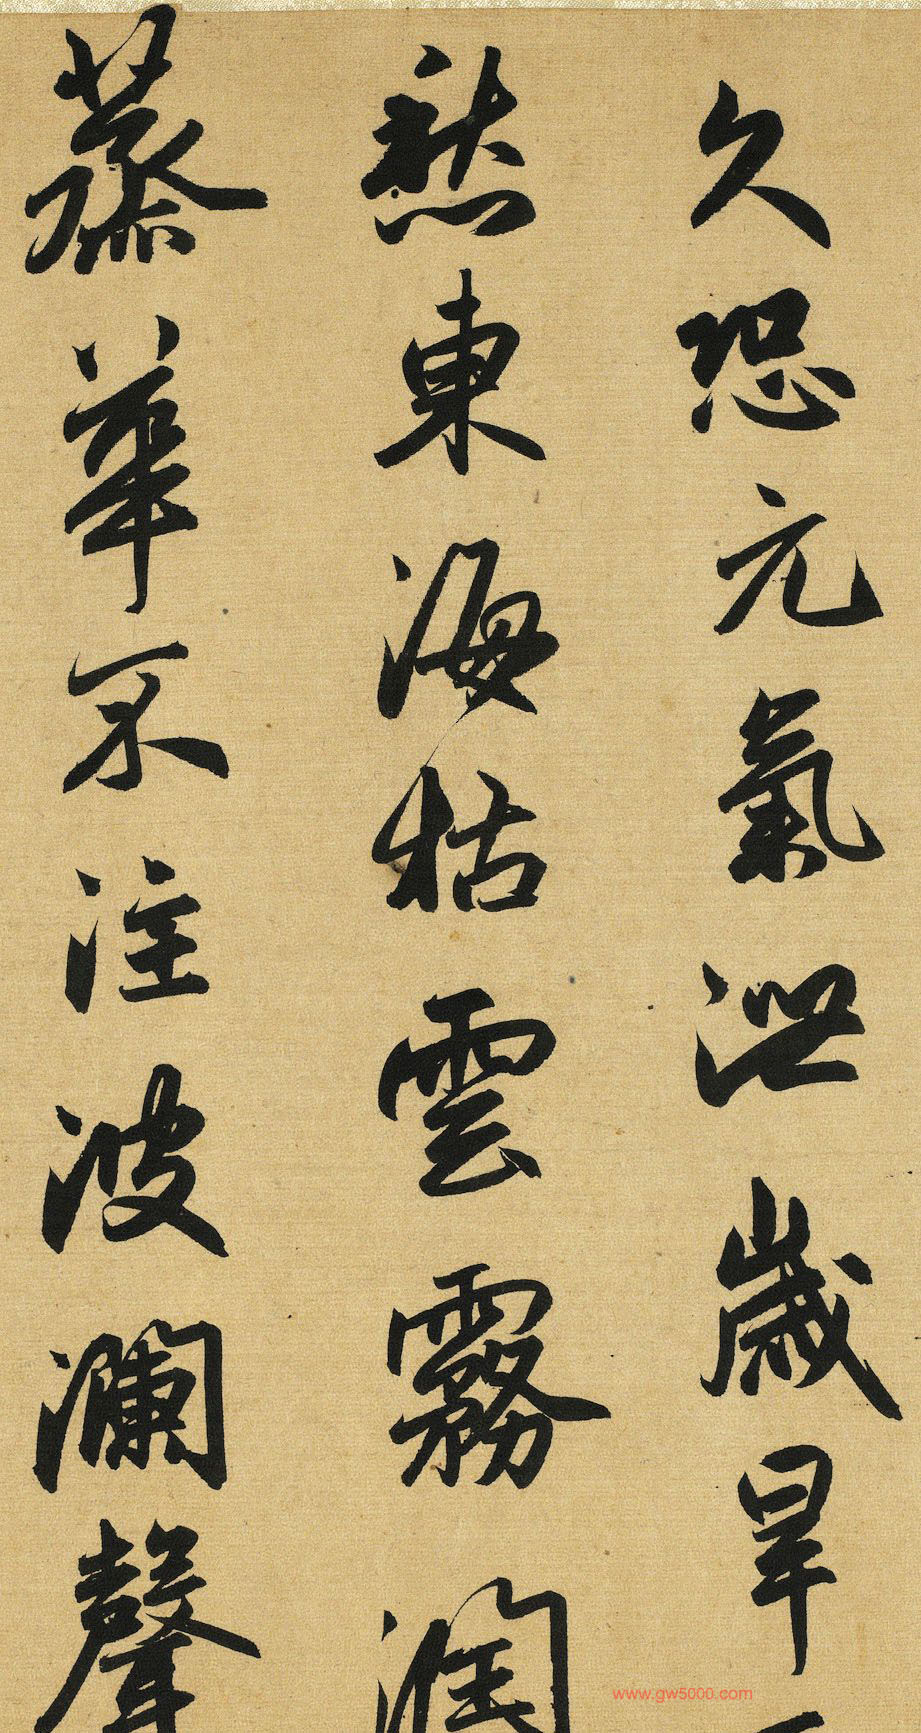 久恐元氣泄歲旱
愁東海枯雲霧潤
蒸華不注波瀾聲
www.gw5000.com